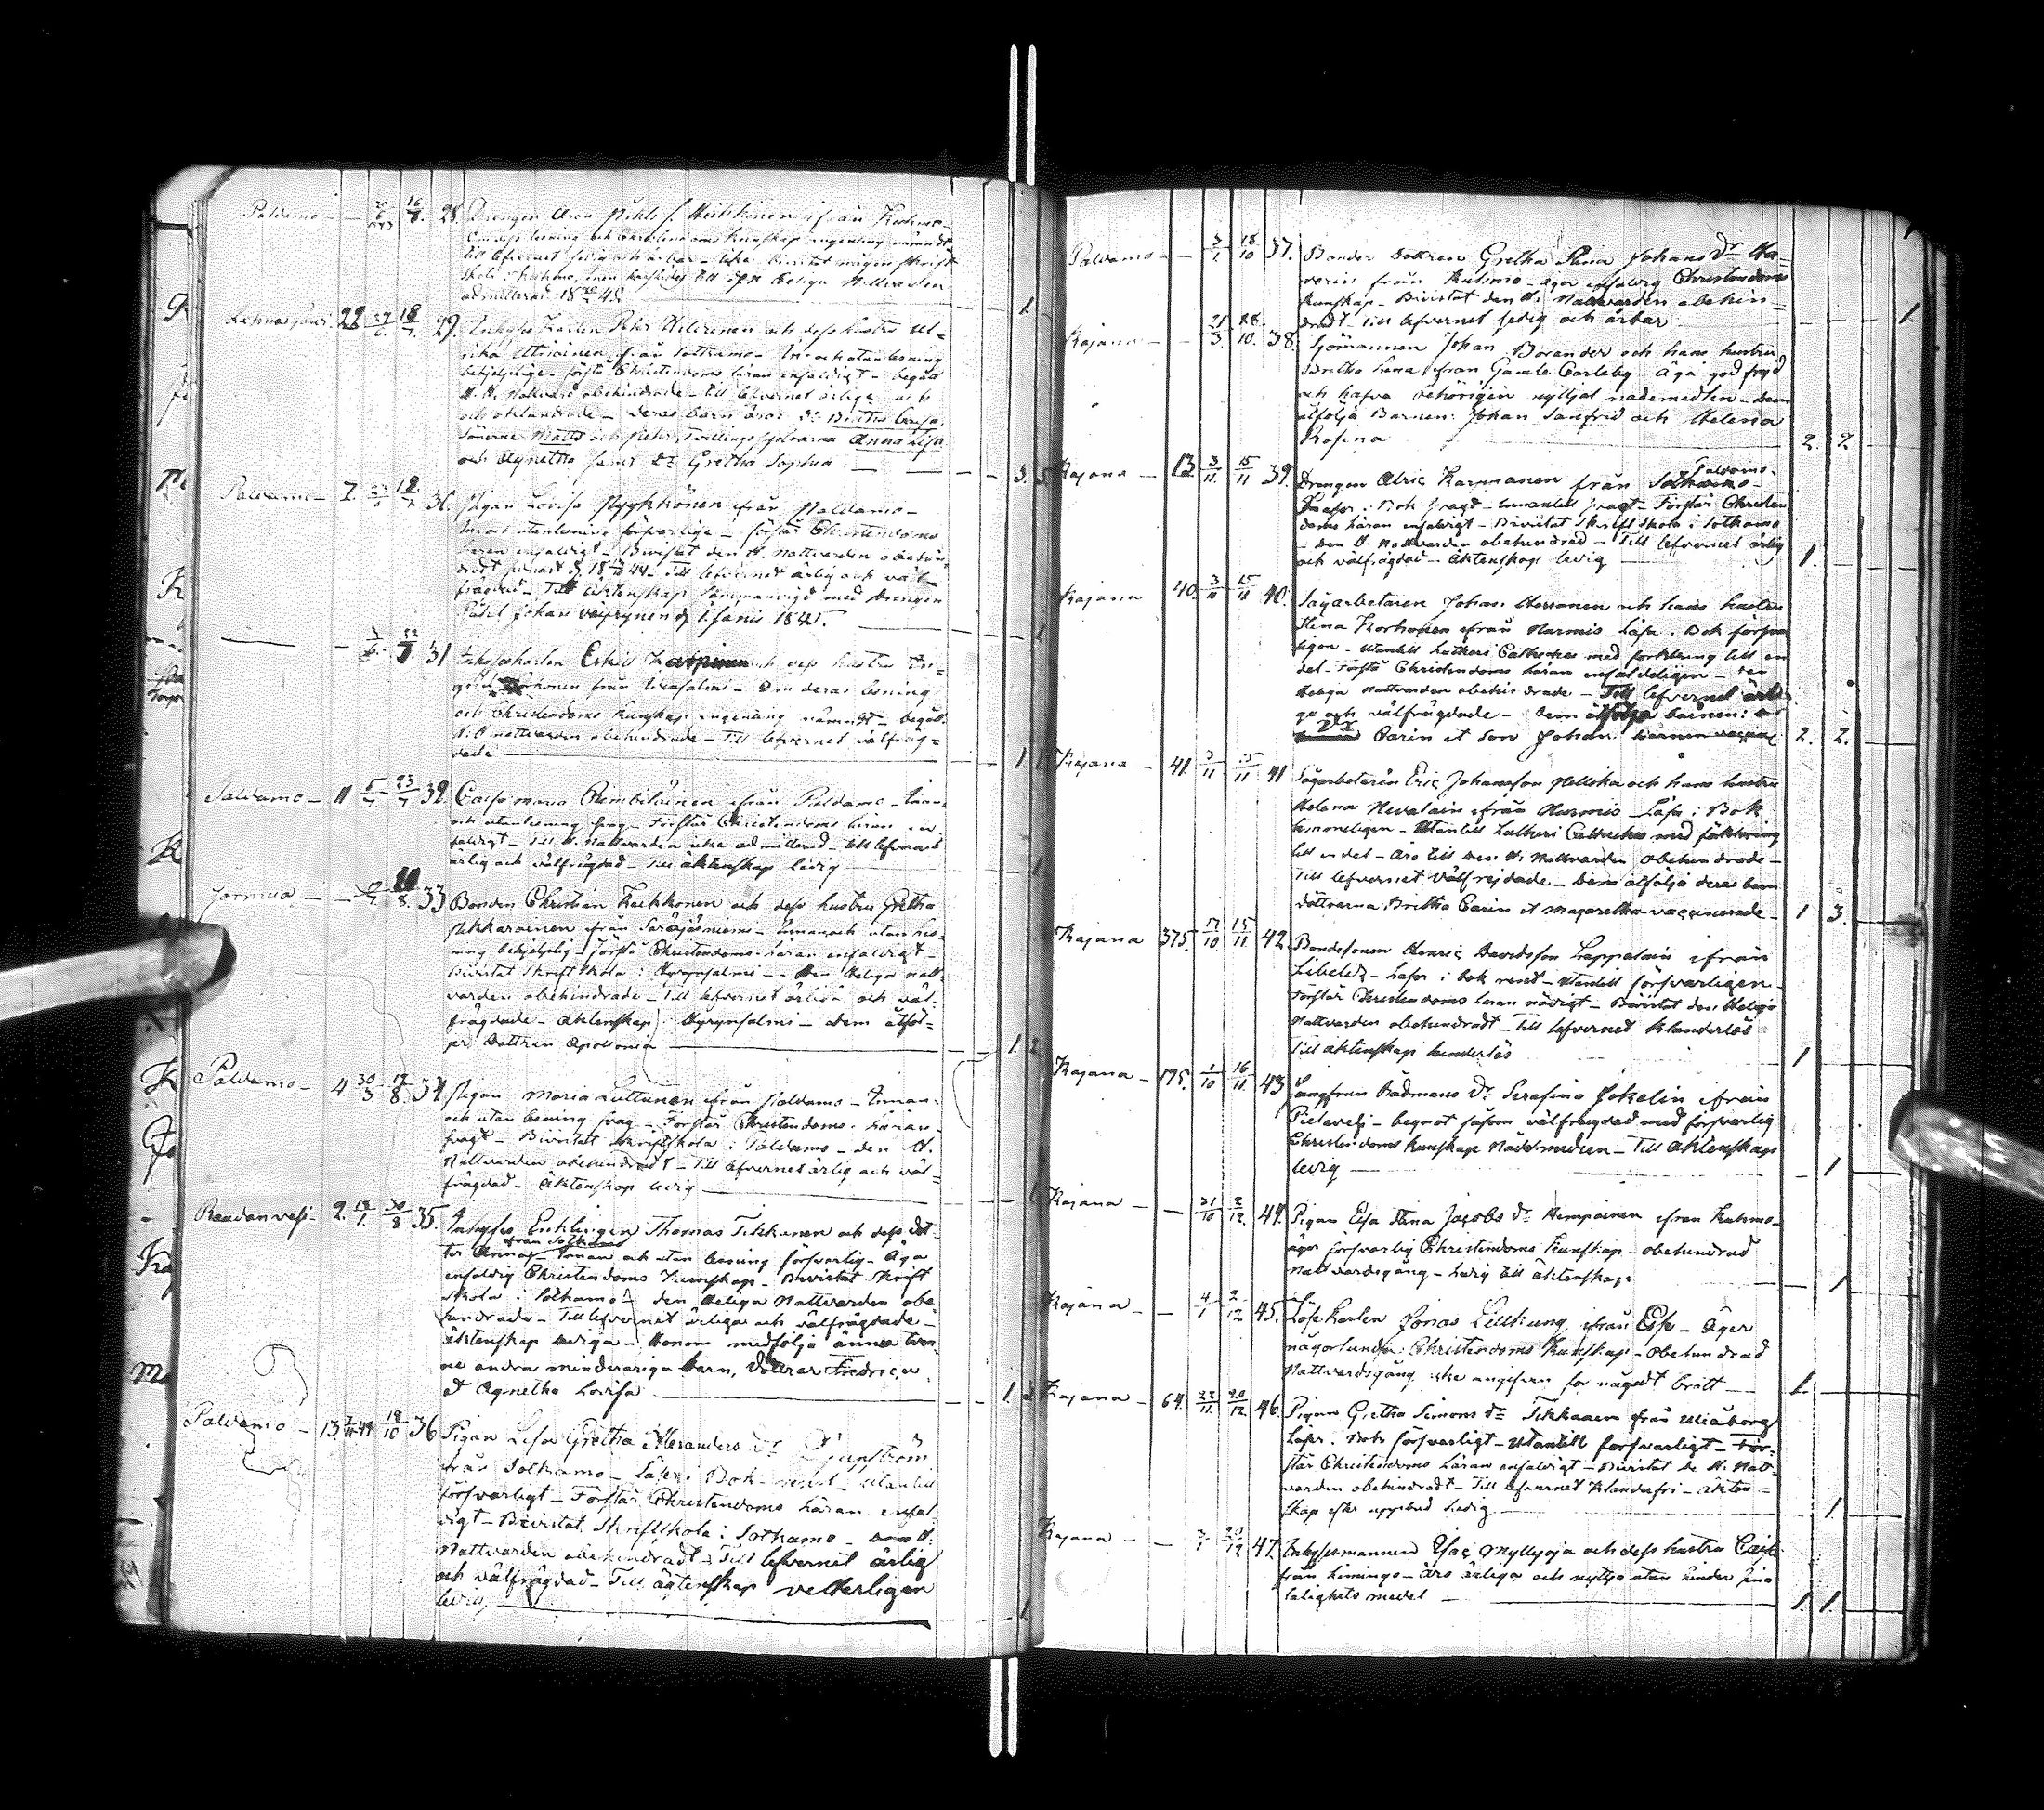 Paldamo — — 20/6 1843 16/8. 28. Drengen Aron Pehrs s. Heikkinen ifrån Kuhmo —
Om dess läsning och Christendoms kunskap ingenting nämndt
till lefvernet
admitterad 18 45
Lehtosjärvi. 22 27/6. 18/7. 29. Inhyses Karlen Pehr och dess hustru Ul-
rika från Sotkamo — Innan och utan läsning
behjelpelige — förstå Christendoms läran enfaldigt — begått
H. H. Nattvard obehindrade — till lefvernet ärlige
och oklandrade — deras barn äro: Dr Britha Caisa,
Sönerne Matts och Pehr, Tvillings systrarna Anna Lisa
och Agnetha samt Dr Gretha Sophia — — 3. 5
Paldamo — 7. 18/7 30. Pigan Lovisa Pyykkönen ifrån Paldamo —
Inn och utanläsning försvarlige — förstår Christendoms
läran enfaldigt — Bivistat den H. Nattvarden obehin-
dradt senast d. 18 44 — Till lefvernet ärlig och väl-
frägdad — Till äktenskap sammanvigd med Drengen
Påhl Johan Väyrynen d. 1 Junii 1845. — 1
— — 31 Inhyseskarlen Eskill och dess hustru In-
från Idensalmi — Om deras läsning
och Christendoms kunskap ingenting nämndt — begått
H. H. nattvarden obehindrade — Till lefvernet välfräg=
dade — 1 1
Paldamo — 11 5/7 23/7 32. Caisa Maria Rembiläinen ifrån Paldamo — Innan
och utanläsning svag — Förstår Christendoms läran en-
faldigt — Till H. Nattvarden icke admitterad — till lefvernet
ärlig och välfrägdad — till äktenskap ledig — 1
Jormua — — 17/7 8. 33 Bonden Christian Heikkonen och dess hustru Gretha
Pekkarainen ifrån Säräisniemi — Innan och utan läs-
ning behjelpelig — Förstå Christendoms läran enfaldigt —
Bivistat Skriftskola i Hyrynsalmi — Den Heliga Natt-
varden obehindrade — Till lefvernet ärliga och väl-
frägdade — äktenskap i Hyrynsalmi — Dem åtföl-
jer Dottren Apollonia — 1. 2
Paldamo — 4. 30/3. 17/8. 34 Pigan Maria Luttunen ifrån Paldamo — Innan
och utan läsning svag — Förstår Christendoms läran
svagt — Bivistat Skriftskola i Paldamo — den H.
Nattvarden obehindradt — Till lefvernet ärlig och väl=
frägdad — Äktenskap ledig — 1
Raudanvesi — 2. 18/1. 30/8 35. Inhyses Enklingen Thomas Tikkanen och dess dot-
från Sotkamo
ter Anna — Innan och utan läsning försvarlig — Äga
enfaldig Christendoms kunskap — Bivistat Skrift
skola i Sotkamo — den Heliga Nattvarden obe-
hindrade — Till lefvernet ärliga och välfrägdade —
äktenskap lediga — Honom medfölja ännu tven
ne andra minderåriga barn, Döttrar Fredrica
et Agnetha Lovisa — 1. 3
Paldamo — 13 44 18/10 36 Pigan Lisa Gretha Alexanders Dr Djupström
från Sotkamo — Läser i Bok rent — Utantill
försvarligt — Förstår Christendoms läran enfal-
digt — Bivistat Skriftskola i Sotkamo — den H.
Nattvarden obehindradt — Till lefvernet ärlig
och välfrägdad — Till ägtenskap vetterligen
ledig, — 1
Paldamo — — 3/1 18/10 37. Bonde dottren Gretha Stina Johans Dr Ha=
verin från Kuhmo — äger enfaldig Christendoms
kunskap — Bivistat den H. Nattvarden obehin-
dradt — Till lefvernet sedig och ärbar — — 1.
Kajana — — 21/3. 28/10. 38. Sjömannen Johan Borander och hans hustru
Britha Lena ifrån Gamle Carleby. Äga god fred
och hafva behörigen nyttjat nademedlen — dem
åtfölja Barnen: Johan Sanfrid och Helena
Rosina — 2. 2.
Kajana — 13. 3/11. 15/11 39. Drengen Alric Karnanen från Sotkamo — Paldamo.
Läser i Bok svagt — Innantill svagt — Förstår Christen
doms läran enfaldigt — Bivistat Skriftskola i Sotkamo
— den H. Nattvarden obehindrad — Till lefvernet ärlig
och välfrägdad — Äktenskap ledig — 1.
Kajana 40. 3/11 15/11 40. Sågarbetaren Johan Herranen och hans hustru
Stina Korhonen ifrån Nurmis — Läsa i Bok försva
ligen — Utantill Lutheri Catheches med förklaring till en
del — Förstå Christendoms läran enfaldeligen — den
Heliga Nattvarden obehindrade — Till lefvernet ärli
ga och välfrägdade — Dem åtfölja barnen:
Dr Carin et son Johan. Barnen vaccine — 2. 2.
Kajana — 41. 3/11 15/11 41 Sågarbetaren Eric Johansson Mellska och hans hustru
Helena Nevalain ifrån Nurmis — Läsa i Bok
Utantill Lutheri Catheches med förklaring
till en del — Äro till des H. Nattvarden obehindrade —
Till lefvernet välfrejdade — Dem åtfölja deras barn
döttrarna Britha Carin et Magaretha vaccinerade — 1 3.
Kajana 375. 17/10 15/11 42. Bondesonen Henric Davidsson Lappalain ifrån
Libelitz — Läser i bok rent — Utantill försvarligen —
Förstår Christendoms läran nödigt — Bivistat den Heliga
Nattvarden obehindradt — Till lefvernet klanderlös
Till äktenskap hinderlös — 1
Kajana — 175. 1/10 16/11 43 Jungfrun Rådmans Dr Serafina Jokelin ifrån
Pielavesi — begått såsom välfrägdad med försvarlig
Christendoms kunskap Nådemedlen — Till äktenskap
ledig — — 1
Kajana — — 21/10 2/12. 44. Pigan Elsa Stina Jacobs Dr Kempainen ifrån Kuhmo —
äger försvarlig Christendoms kunskap — obehindrad
Nattvardsgång — ledig till äktenskap — — 1
Kajana — — 4/1 2/12 45. Löskarlen Jonas Lillkung ifrån Esse — Äger
någorlunda Christendoms kunskap — Obehindrad
Nattvardsgång icke angifven för något brott — 1.
Kajana — 64. 22/11. 20/12. 46. Pigan Gretha Simons Dr Tikkanen från Uleåborg
Läser i Bok försvarligt — Utantill försvarligt — För-
står Christendoms läran enfaldigt — Bivistat de H. Natt-
varden obehindradt — Till lefvernet klanderfri — äkten=
skap efter uppbud ledig — — 1.
Kajana — — 20/12 47. Inhysesmannen Esaç Myllyoja och dess hustru Caisa
från Limingo — äro ärliga och nyttja utan hinder sina
salighets medel — 1. 1.